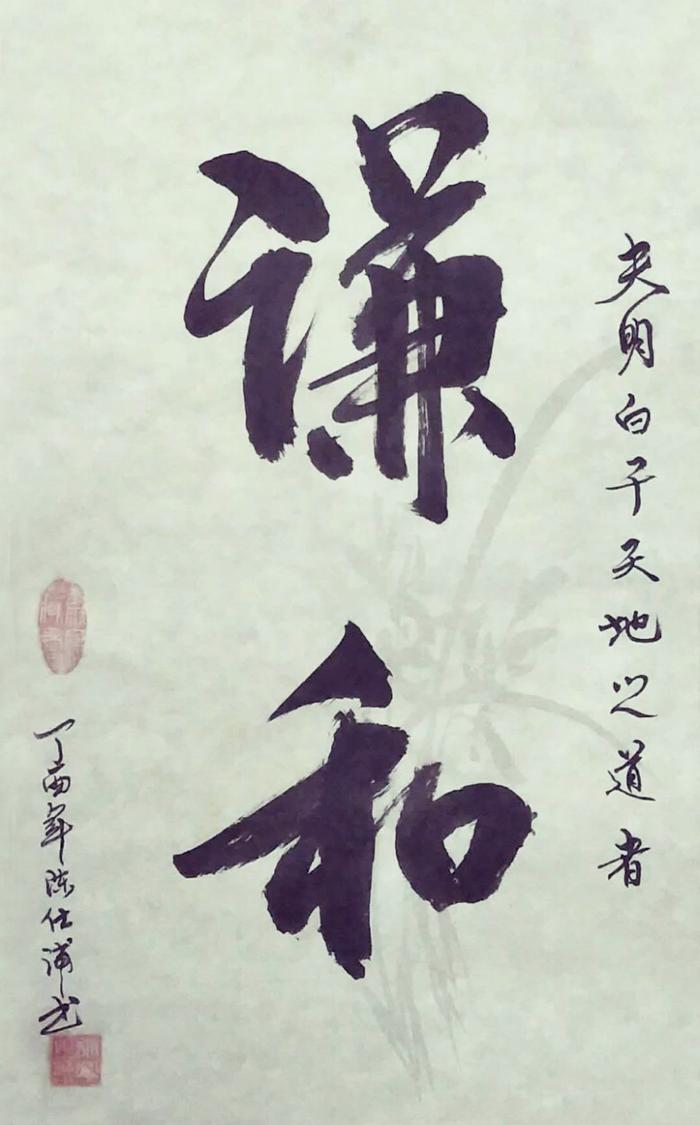 夫明白于天地之道者
谦和
丁酉年陈仕浦书